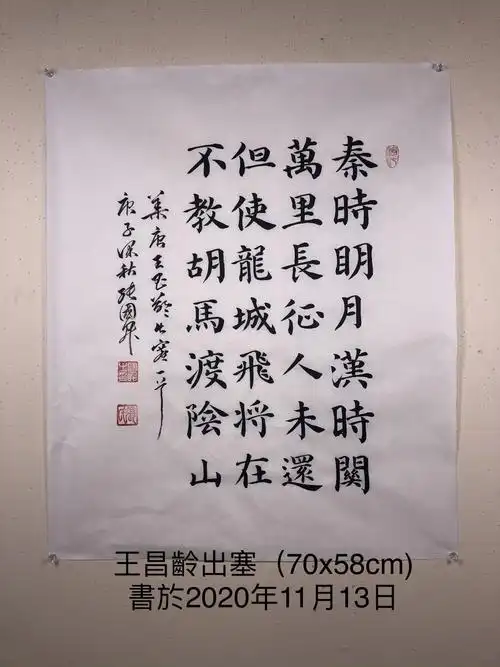 秦時明月漢時關
萬里長征人未還
但使龍城飛将在
不教胡馬渡陰山
唐王昌齡出塞一首
庚子深秋
王昌齡出塞（70x58cm)
書於2020年11月13日